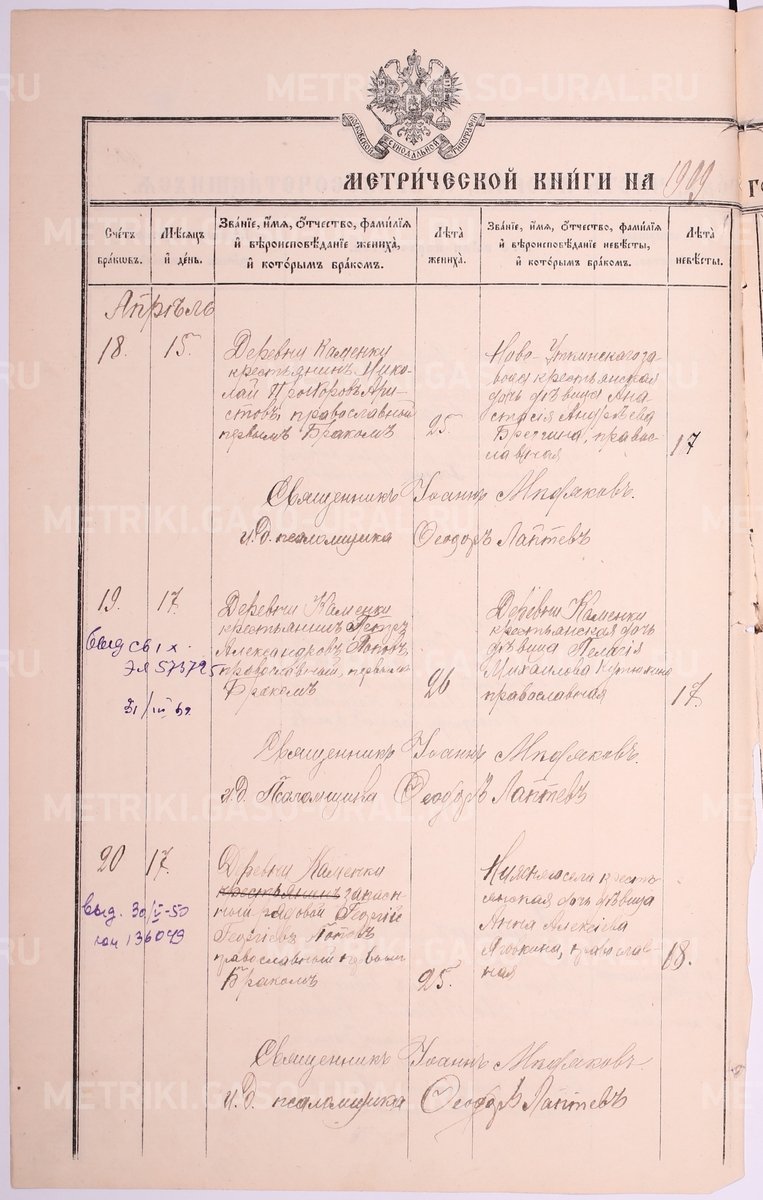 МОСКОВСКОЙ СѴНОДАЛЬНОЙ ТИПОГРАФІИ
МЕТРИ́ЧЕСКОЙ КНИ́ГИ НА 1909
Сче́тъ бра́кѡвъ.
Мѣ́сѧцъ и҆ де́нь.
Зва́нїе, и҆́мѧ, ѻ҆́тчество, фамѝлїѧ и҆ вѣроисповѣ́данїе жениха̀, и҆ кото́рымъ бра́комъ.
Лѣ́та жениха̀.
Зва́нїе, и҆́мѧ, ѻ҆́тчество, фамѝлїѧ и҆ вѣроисповѣ́данїе невѣ́сты, и҆ кото́рымъ бра́комъ.
Лѣ́та невѣ́сты.
Апрѣль
18. 15.
Деревни Каменки
крестьянинъ Нико-
лай Прохоровъ Ари-
стовъ, православный
первымъ бракомъ
25.
Ново-Уткинскаго за-
вода крестьянская
дочь дѣвица Ана-
стасія Андреева
православ-
лавная
17
Священникъ Іоаннъ
и.д. псаломщика Ѳеодоръ Лаптевъ
19. 17.
Деревни Каменки
крестьянинъ Петръ
Александровъ Поповъ,
православный, первымъ
бракомъ
26
Деревни Каменки
крестьянская дочь
дѣвица Пелагія
Михаилова
православная
17.
выд св IX
ЭЛ 573725
31/III 62
Священникъ Іоаннъ
и.д. Псаломщика Ѳеодоръ Лаптевъ
20 17.
Деревни Каменки
крестьянинъ запас-
ный рядовой Георгій
Георгіевъ
православный первымъ
бракомъ
25.
села кресть-
янская дочь дѣвица
Анна Алексіева
православ-
ная
18.
выд. 30/I-50
136049
Священникъ Іоаннъ
и.д. псаломщика Ѳеодоръ Лаптевъ
METRIKI.GASO-URAL.RU